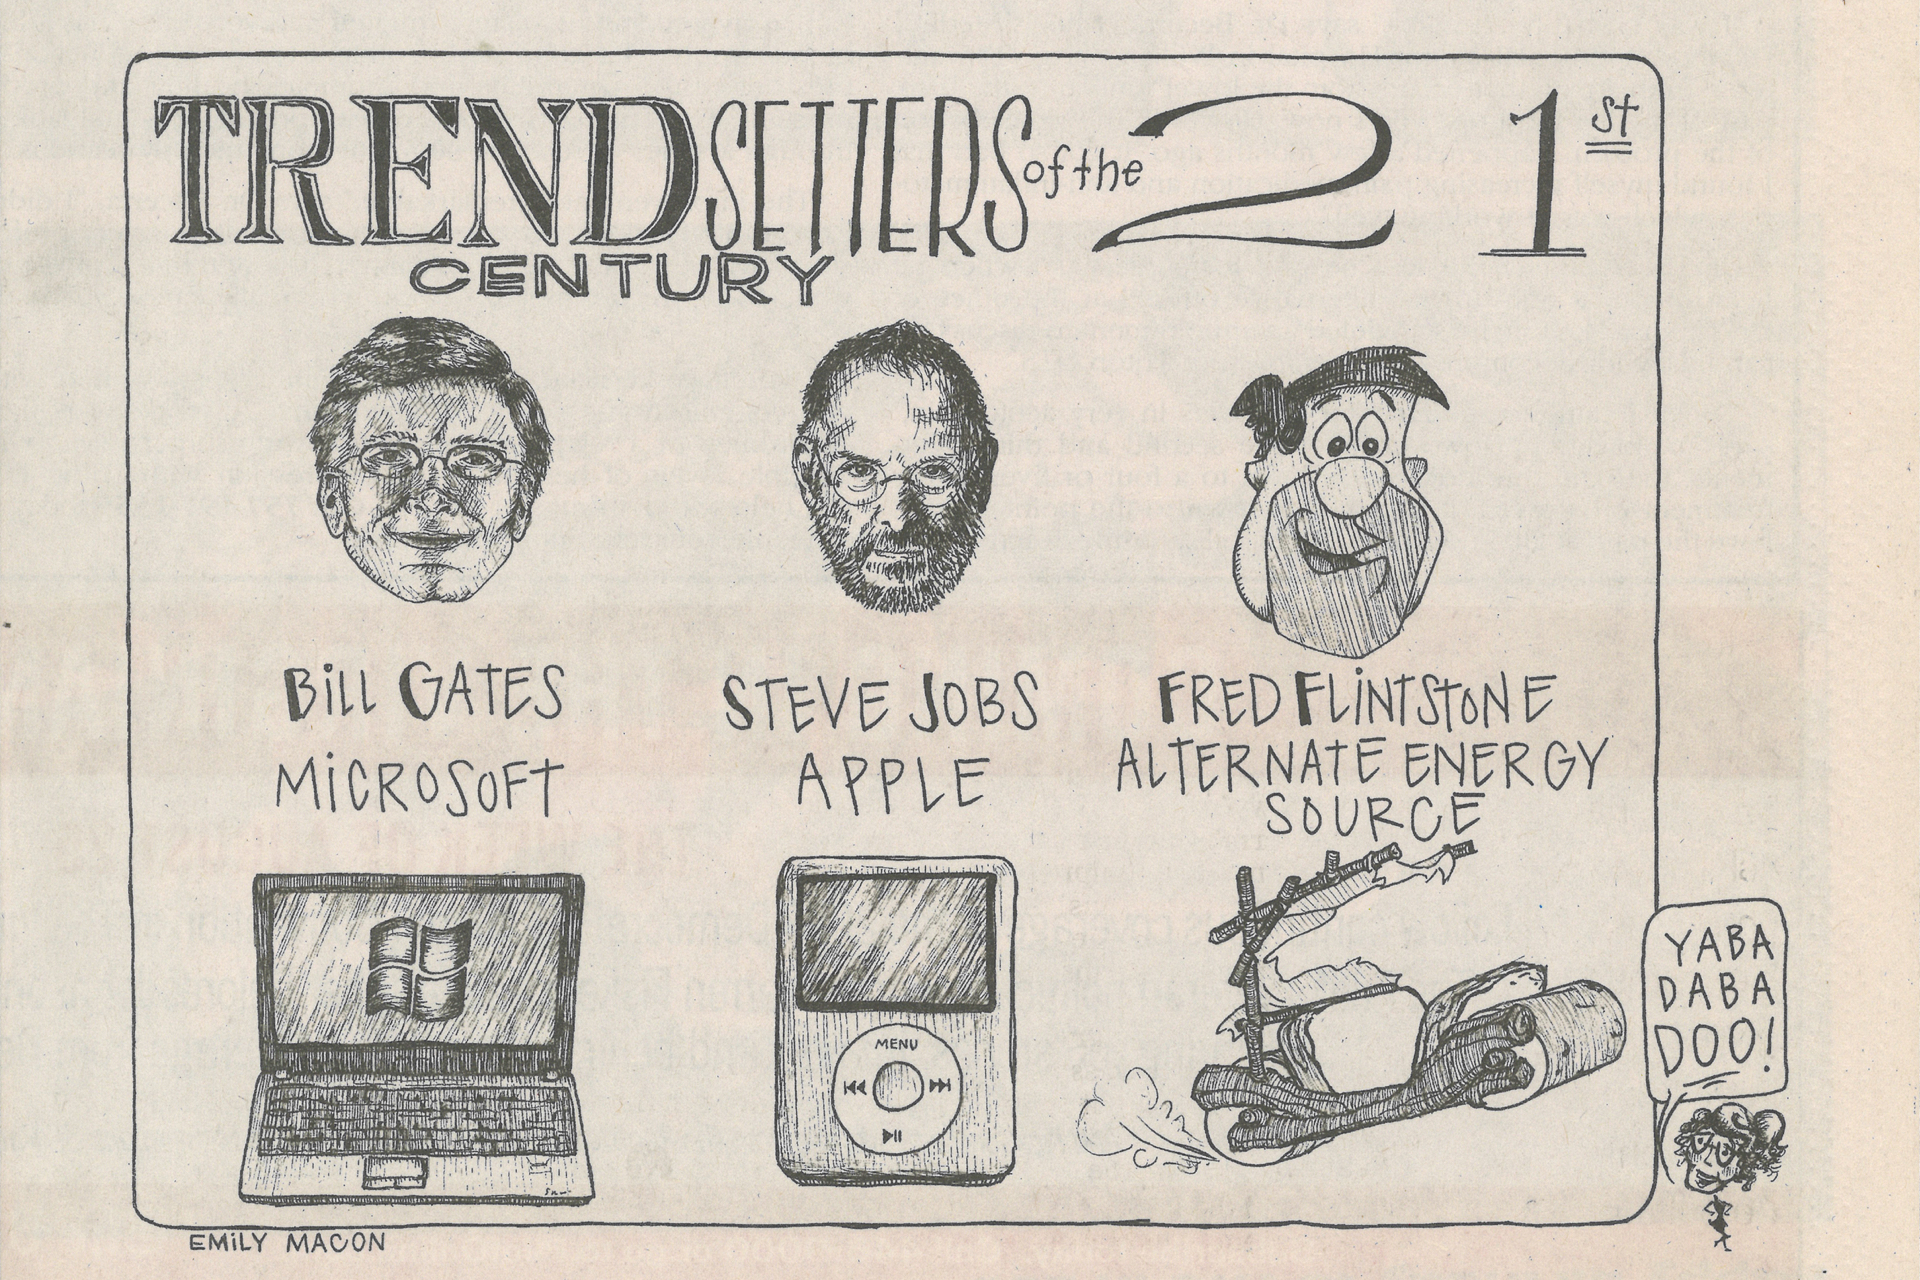 TRENDSETTERS of the 21st
CENTURY
BiLL GATES
MiCROSOFT
STEVE JOBS
APPLE
FRED FLiNTSTONE
ALTERNATE ENERGY
SOURCE
MENU
YABA
DABA
DOO!
EMiLY MACON